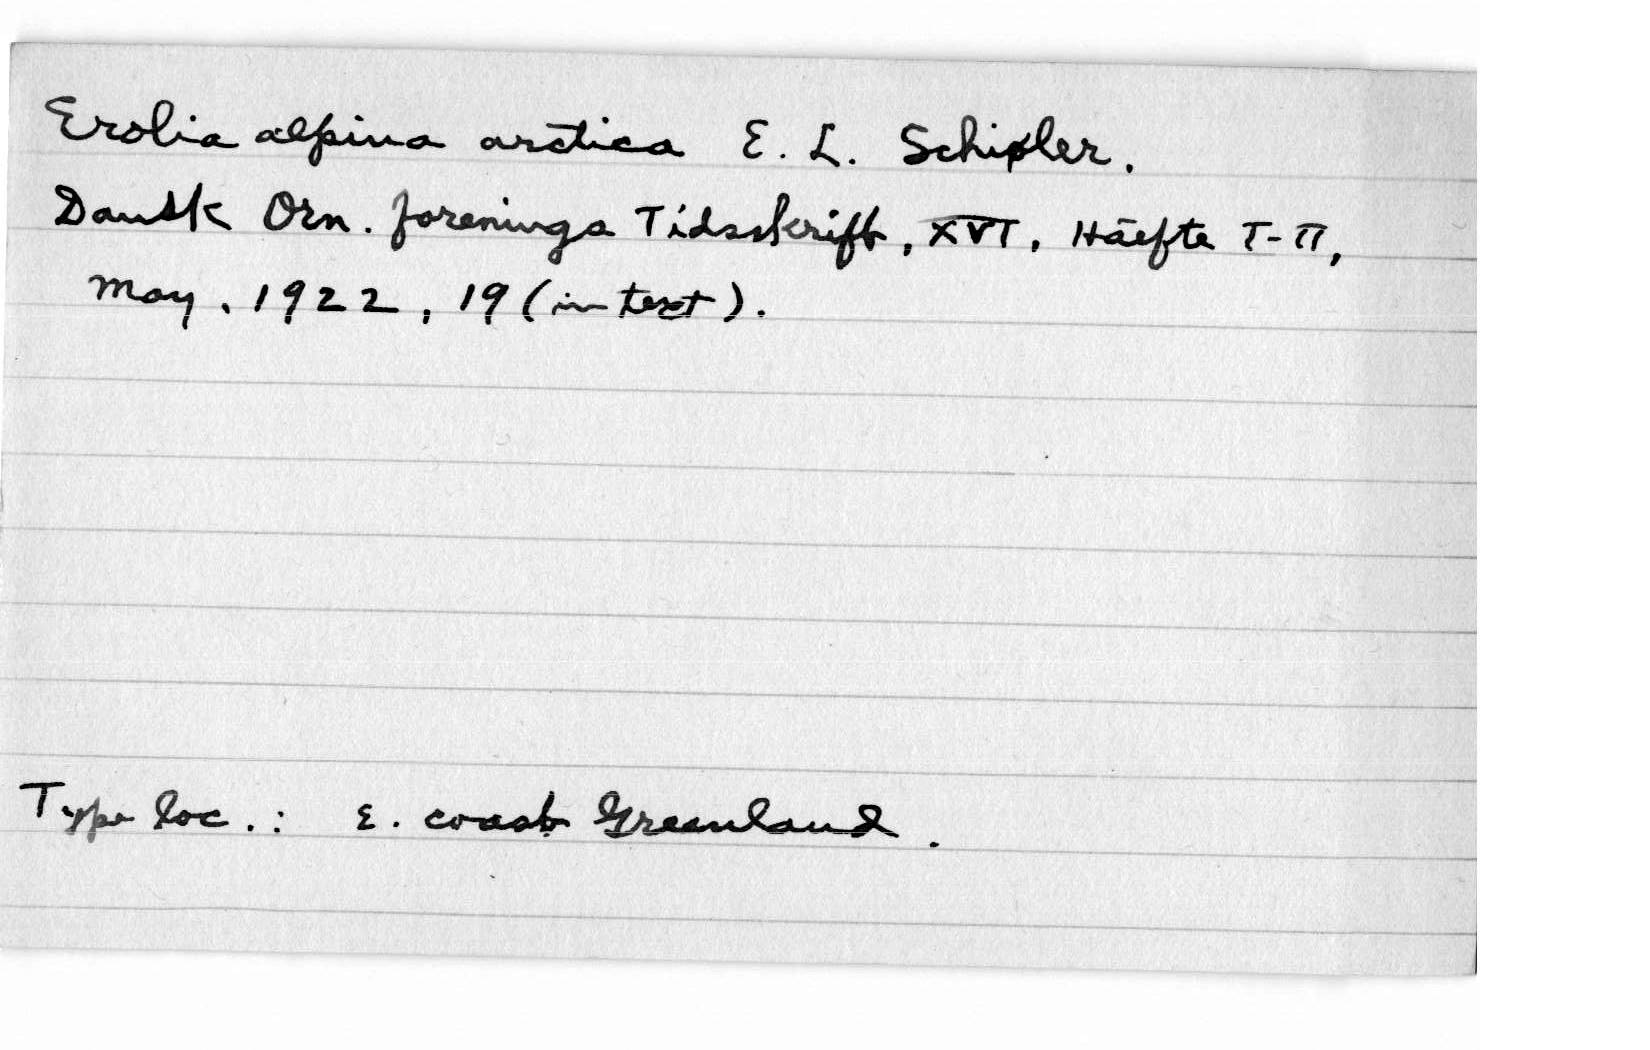 Erolia alpina arctica E. L. Schiøler.
Dansk Orn. forenings Tidsskrift, XVI, Häefte I-II,
May, 1922, 19 (in text).
Type loc.: E. coast Greenland.